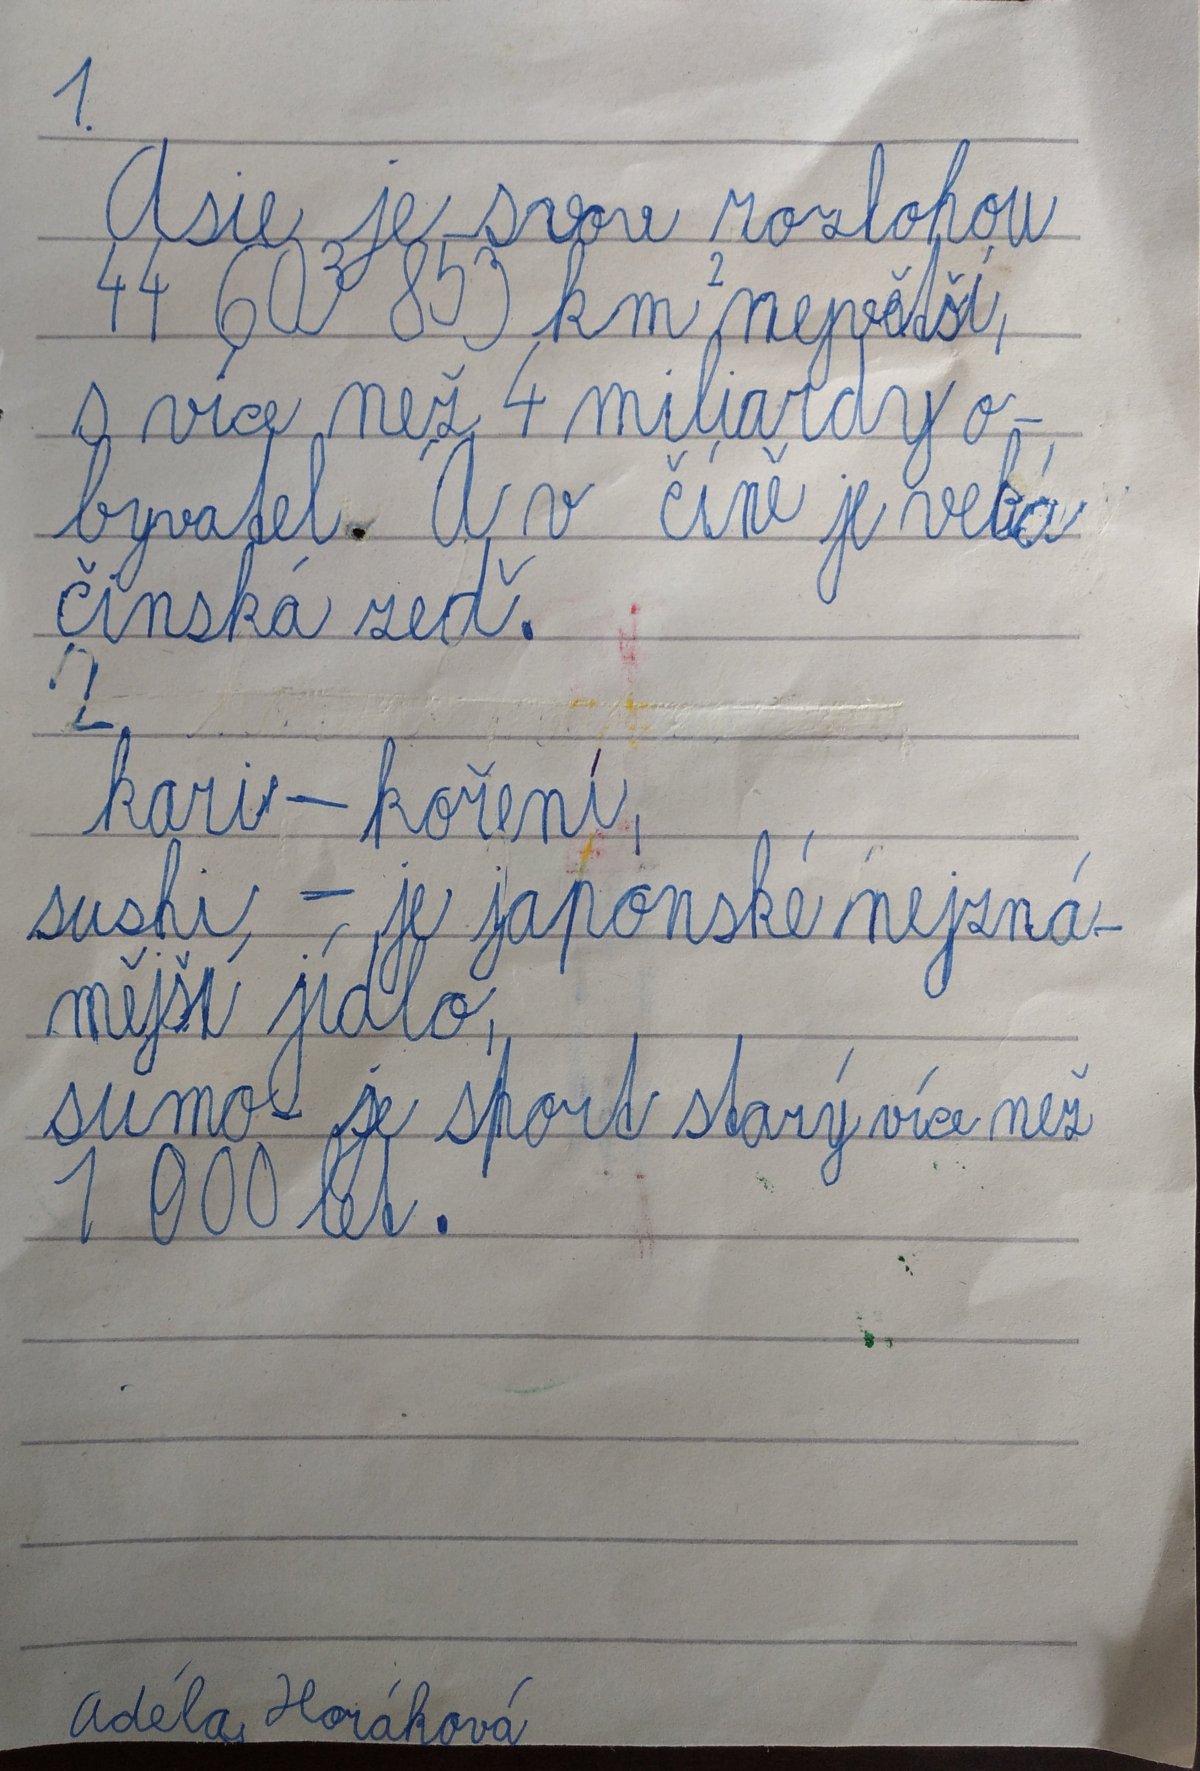 1.
Asie je svou rozlohou
44 603 853 km² největší,
s více než 4 miliardy o-
byvatel. A v číně je velká
čínská zeď.
2
kari - koření,
sushi, - je japonské nejzná-
mější jídlo,
sumo - je sport starý více než
1 000 let.
Adéla Horáková